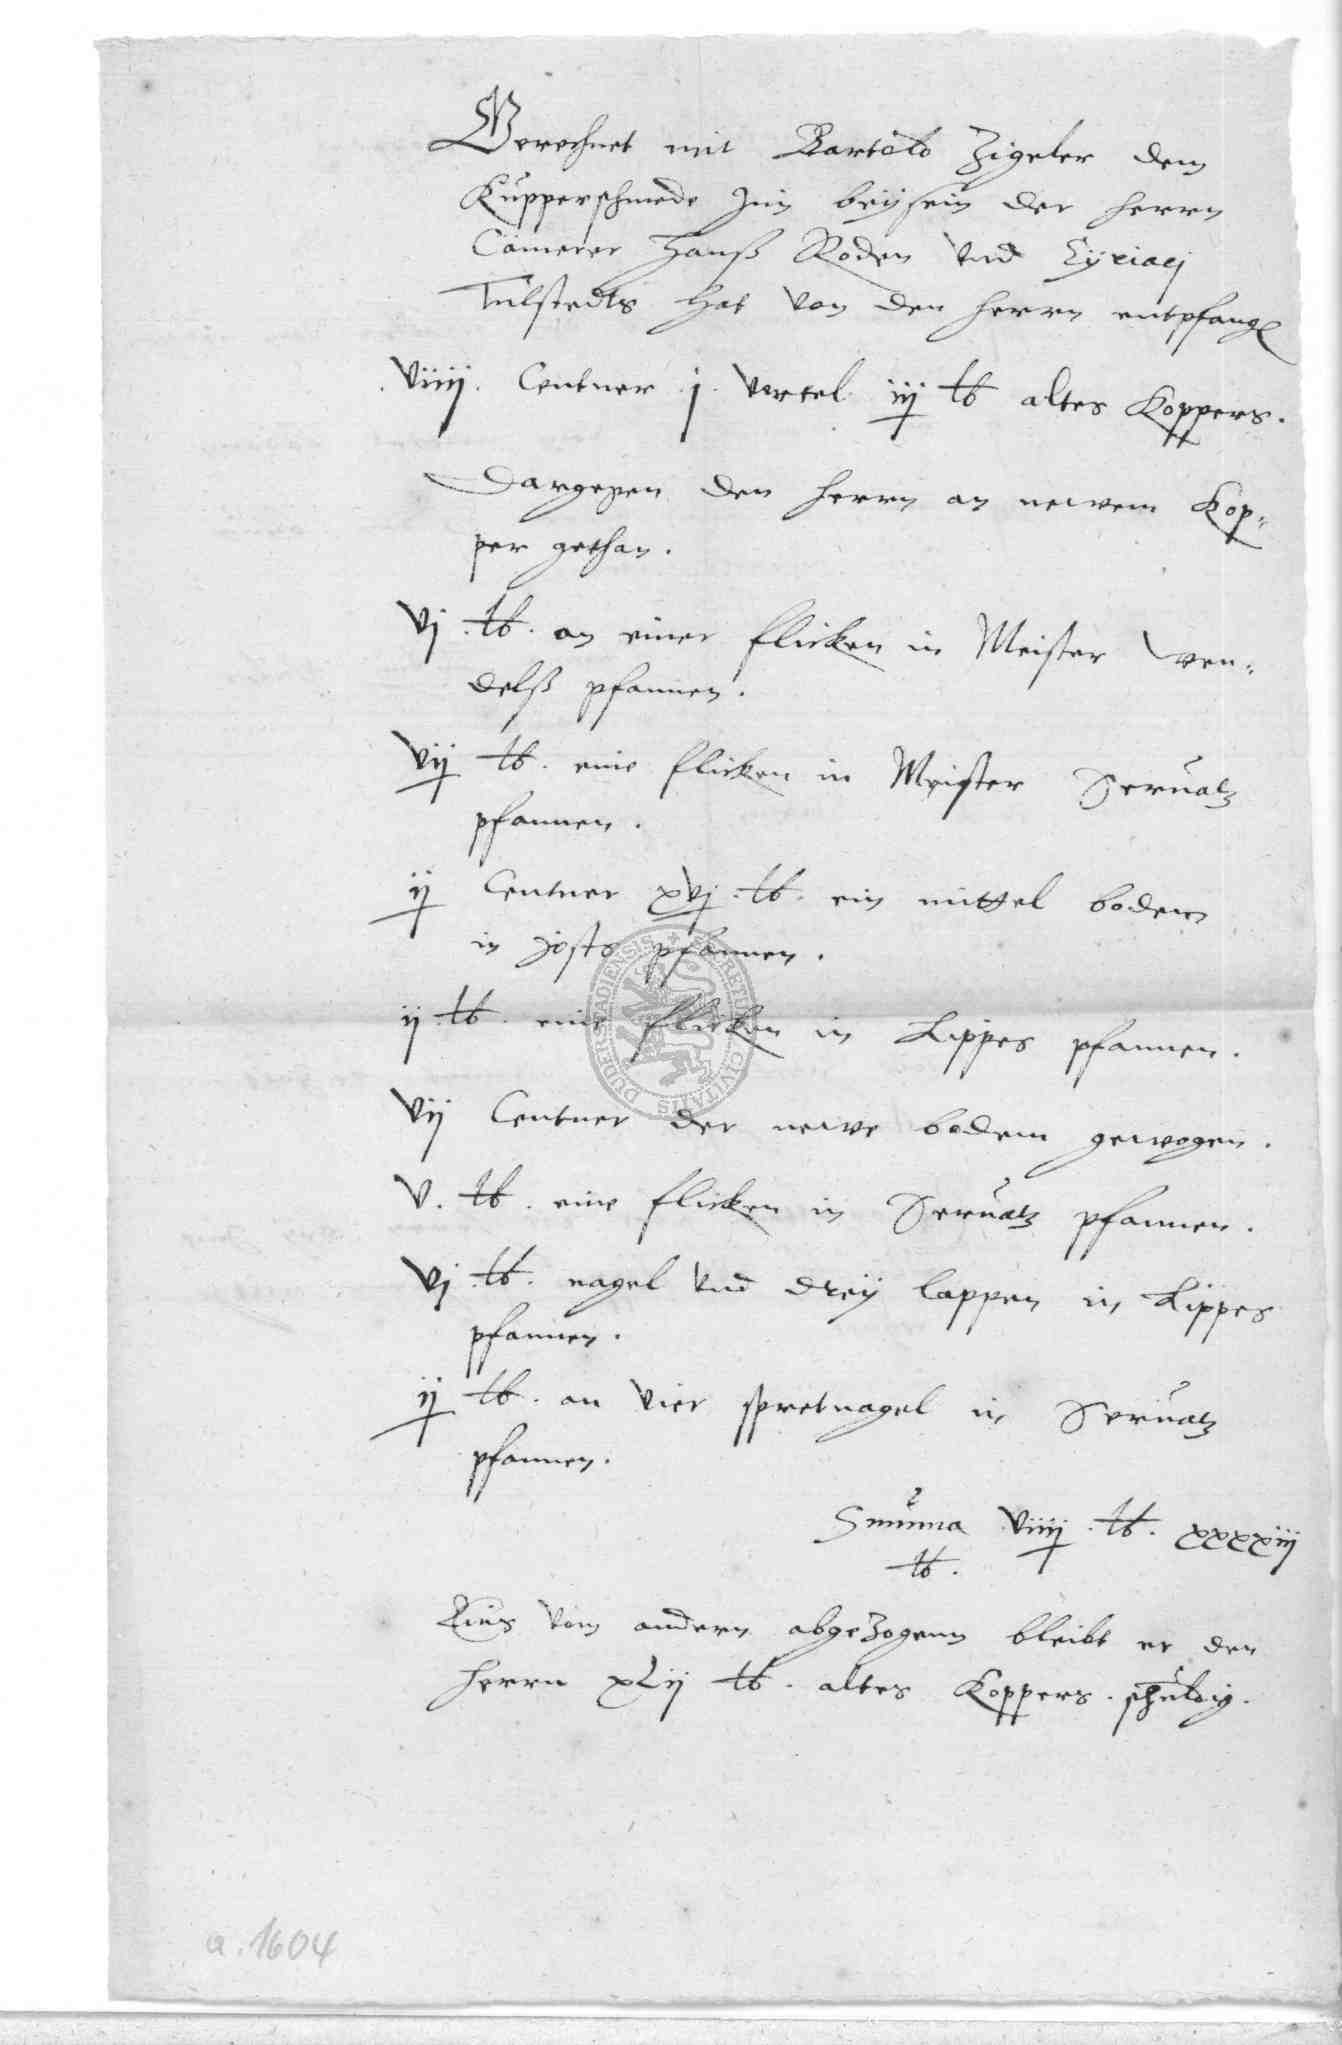 Gerechnet mit Bartold Zigeler dem
Kupperschmede Inn beysein der herrn
Camerer Hanß Roden vnd Cyriacj
Tulstedts hat von den herrn entpfang
viiij. Centner j vertel iij ℔ altes Koppers.
Dargegen den herrn an newem Kop-
per gethan.
vj ℔. an einer flicken in Meister Wen-
delß pfannen.
vij ℔. eine flicken in Meister Seruatz
pfannen.
ij Centner xvj ℔. ein mittel bodem
in Josts pfannen.
ij ℔. eine flicken in Lippes pfannen.
vij Centner der newe bodem gewogen.
v. ℔. eine flicken in Seruatz pfannen.
vj ℔. nagel vnd drey lappen in Lippes
pfannen.
ij ℔. an vier spretnagel in Seruatz
pfannen.
Summa viiij ℔. xxxxiij
℔.
Eins vom andern abgezogenn bleibt er den
herrn xLij ℔. altes Koppers. schuldig.
SECRETUM CIVITATIS DUDERSTADIENSIS
a. 1604